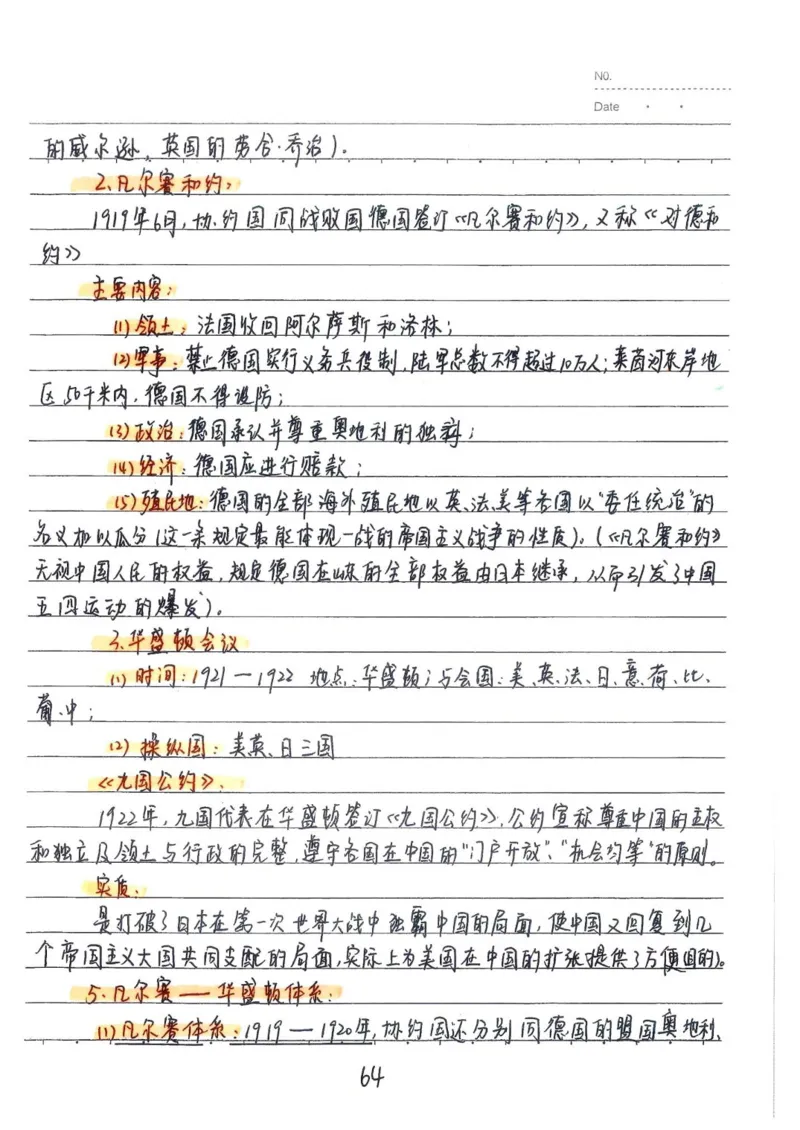 No.
Date
的威尔逊、英国的劳合·乔治）。
2、凡尔赛和约：
1919年6月，协约国同战败国德国签订《凡尔赛和约》，又称《对德和
约》
主要内容：
(1)领土：法国收回阿尔萨斯和洛林；
(2)军事：禁止德国实行义务兵役制，陆军总数不得超过10万人；莱茵河东岸地
区50千米内，德国不得设防；
(3)政治：德国承认并尊重奥地利的独立；
(4)经济：德国应进行赔款；
(5)殖民地：德国的全部海外殖民地以英、法、美等各国以“委任统治”的
名义加以瓜分（这一条规定最能体现一战的帝国主义战争的性质）。（《凡尔赛和约》
无视中国人民的权益，规定德国在山东的全部权益由日本继承，从而引发了中国
五四运动的爆发）。
3、华盛顿会议
(1)时间：1921—1922 地点：华盛顿；与会国：美、英、法、日、意、荷、比、
葡、中；
(2)操纵国：美英、日三国
《九国公约》：
1922年，九国代表在华盛顿签订《九国公约》，公约宣称尊重中国的主权
和独立及领土与行政的完整，遵守各国在中国的“门户开放”、“机会均等”的原则。
实质：
是打破了日本在第一次世界大战中独霸中国的局面，使中国又回复到几
个帝国主义大国共同支配的局面，实际上为美国在中国的扩张提供了方便
5.凡尔赛——华盛顿体系：
(1)凡尔赛体系：1919—1920年，协约国还分别同德国的盟国奥地利、
64